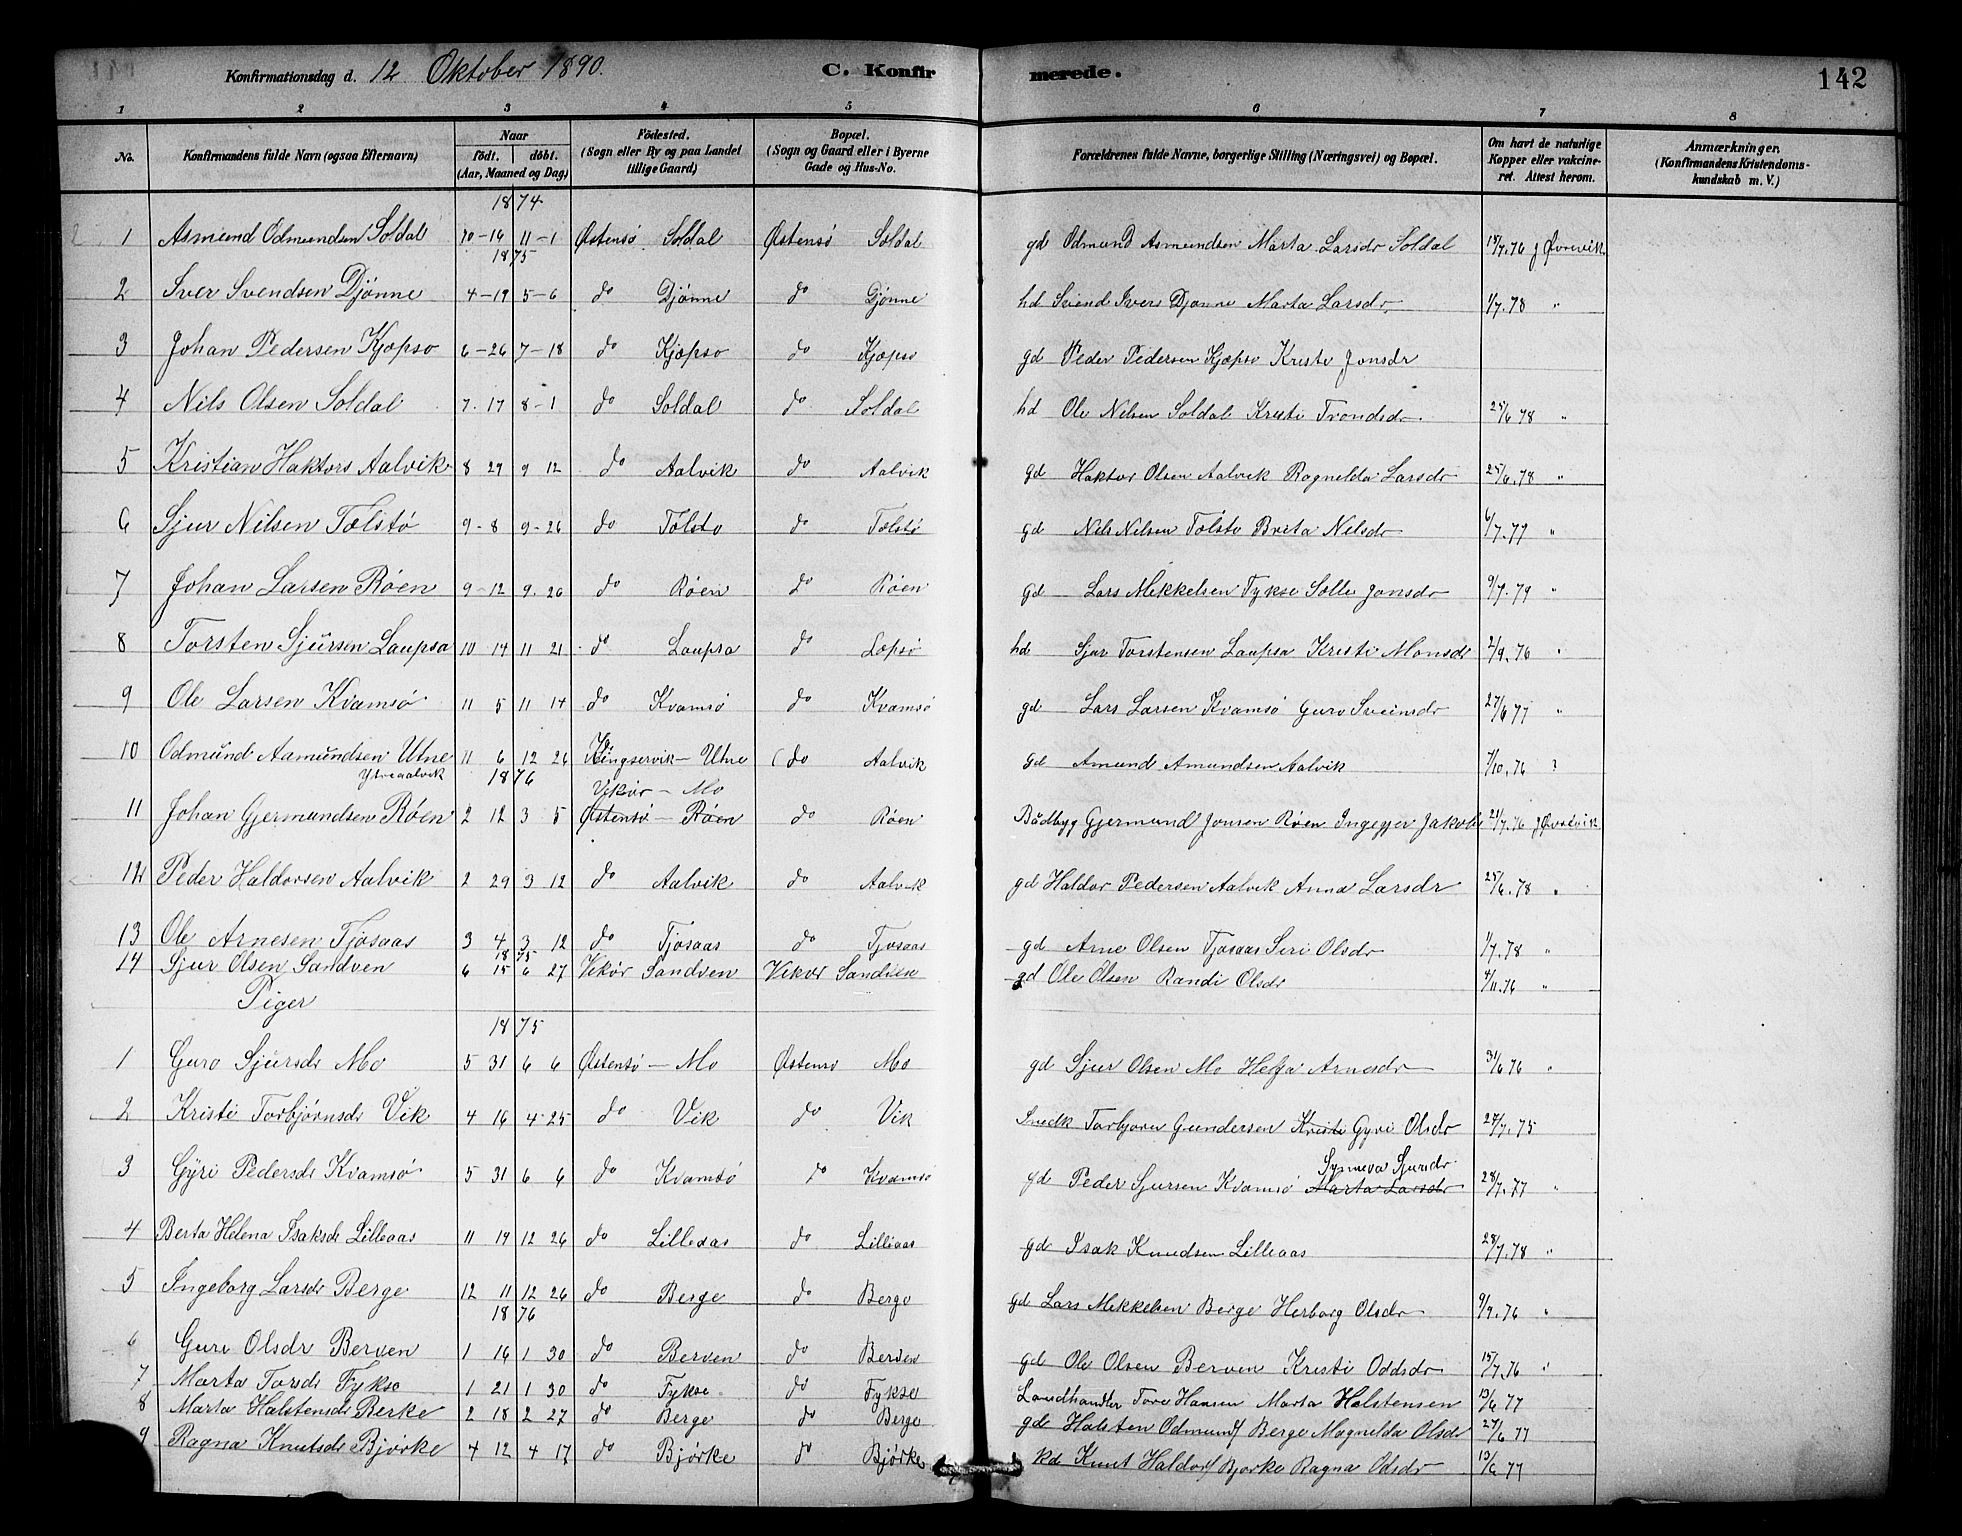 Konfirmationsdag d. 12 Oktober 1890. C. Konfirmerede. 142
1 2 3 4 5 6 7 8
No. Konfirmandens fulde Navn (ogsaa Efternavn) Naar födt. döbt. (Aar, Maaned og Dag) Födested. (Sogn eller By og paa Landet tillige Gaard) Bopæl. (Sogn og Gaard eller i Byerne Gade og Hus-No. Forældrenes fulde Navne, borgerlige Stilling (Næringsvei) og Bopæl. Om havt de naturlige Kopper eller vakcineret. Attest herom. Anmærkninger. (Konfirmandens Kristendomskundskab m. V.)
1874
1 Asmund Odmundsen Soldal 10-16 11-1 Østensø Soldal Østensø Soldal gd Odmund Asmundsen Marta Larsdr Soldal 18/7.76 J Øvrevik
1875
2 Iver Svendsen Djønne 4-19 5-6 do Djønne do Djønne hd Svend Ivers Djønne Marta Larsdr 1/7.78 "
3 Johan Pedersen Kjøpsø 6-26 7-18 do Kjøpso do Kjøpsø gd Peder Pedersen Kjøpsø Kristi Jonsdr
4 Nils Olsen Soldal 7.17 8-1 do Soldal do Soldal hd Ole Nilsen Soldal Kristi Trondsdr 25/6.78 "
5 Kristian Haktors Aalvik 8 29 9 12 do Aalvik do Aalvik gd Haktor Olsen Aalvik Ragnilda Larsdr 25/6.78 "
6 Sjur Nilsen Tolstø 9-8 9-26 do Tolsto do Tolstø gd Nels Nilsen Tolsto Brita Nilsdr 6/7.77 "
7 Johan Larsen Røen 9-12 9.26 do Røen do Røen gd Lars Mikkelsen Fykse Solle Jonsdr 9/7.79 "
8 Torsten Sjursen Laupsa 10 14 11 21 do Laupsa do Lopsø hd Sjur Torstensen Laupsa Kristi Monsdr 2/9.76 "
9 Ole Larsen Kvamsø 11 5 11 14 do Kvamsø do Kvamsø gd Lars Larsen Kvamsø Guro Sveinsdr 27/6.77 "
10 Odmund Aamundsen Utne Ytreaalvik 11 6 12 26 Kingservik - Utne do Aalvik gd Amund Amundsen Aalvik 7/10.76 "
1876 Vikør - Mo
11 Johan Gjermundsen Røen 2 12 3 5 Østensø - Røen do Røen Bådbyg Gjermund Jonsen Røen Ingegjer Jakobs 21/7.76 J Øvrevik
12 Peder Haldorsen Aalvik 2 29 3 12 do Aalvik do Aalvik gd Haldor Pedersen Aalvik Anna Larsdr 25/6.78 "
13 Ole Arnesen Tjosaas 3 4 3 12 do Tjosaas do Tjosaas gd Arne Olsen Tjosaas Siri Olsdr 1/7.78 "
1875
14 Sjur Olsen Sandven 6 15 6 27 Vikør Sandven Vikør Sandven gd Ole Olsen Randi Olsdr 4/11.76 "
Piger
1875
1 Guro Sjursdr Mo 5 31 6 6 Østensø - Mo Østensø Mo gd Sjur Olsen Mo Helga Arnesdr 31/6 76 "
2 Kristi Torbjørnsdr Vik 4 16 4-25 do Vik do Vik Snedk Torbjorn Gundersen Kristi Gyri Olsdr 27/7.75
3 Gyri Pedersdr Kvamsø 5 31 6 6 do Kvamsø do Kvamsø gd Peder Sjursen Kvamsø Marta Larsdr Synneva Sjursdr 28/7.77 "
4 Berta Helena Isaksdr Lilleaas 11 19 12 26 do Lilleaas do Lilleaas gd Isak Knudsen Lilleaas 28/7.78 "
5 Ingeborg Larsdr Berge 12 11 12 26 do Berge do Berge gd Lars Mikkelsen Berge Herborg Olsdr 9/9.76 "
1876
6 Guri Olsdr Berven 1 16 1 30 do Berven do Berven gd Ole Olsen Berven Kristi Oddsdr 15/7.76 "
7 Marta Torsdr Fykse 1 21 1 30 do Fykse do Fykse Landhandler Tore Hansen Marta Halstensen 13/6 77
8 Marta Halstensdr Berke 2 18 2 27 do Berge do Berge gd Halsten Odmunds Berge Magnilda Olsdr 27/6 77
9 Ragna Knutsdr Bjørke 4 12 4 17 do Bjørke do Bjørke kd Knut Haldors Bjorke Ragna Odsdr 13/6 77